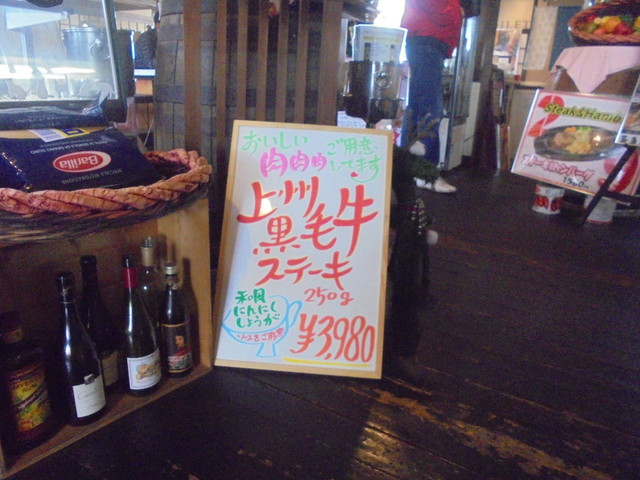 おいしい
肉肉肉
ご用意
してます
上州
黒毛牛
ステーキ
250g
和風
にんにく
しょうが
ソースをご用意
¥3,980
Barilla
Steak&Hamb